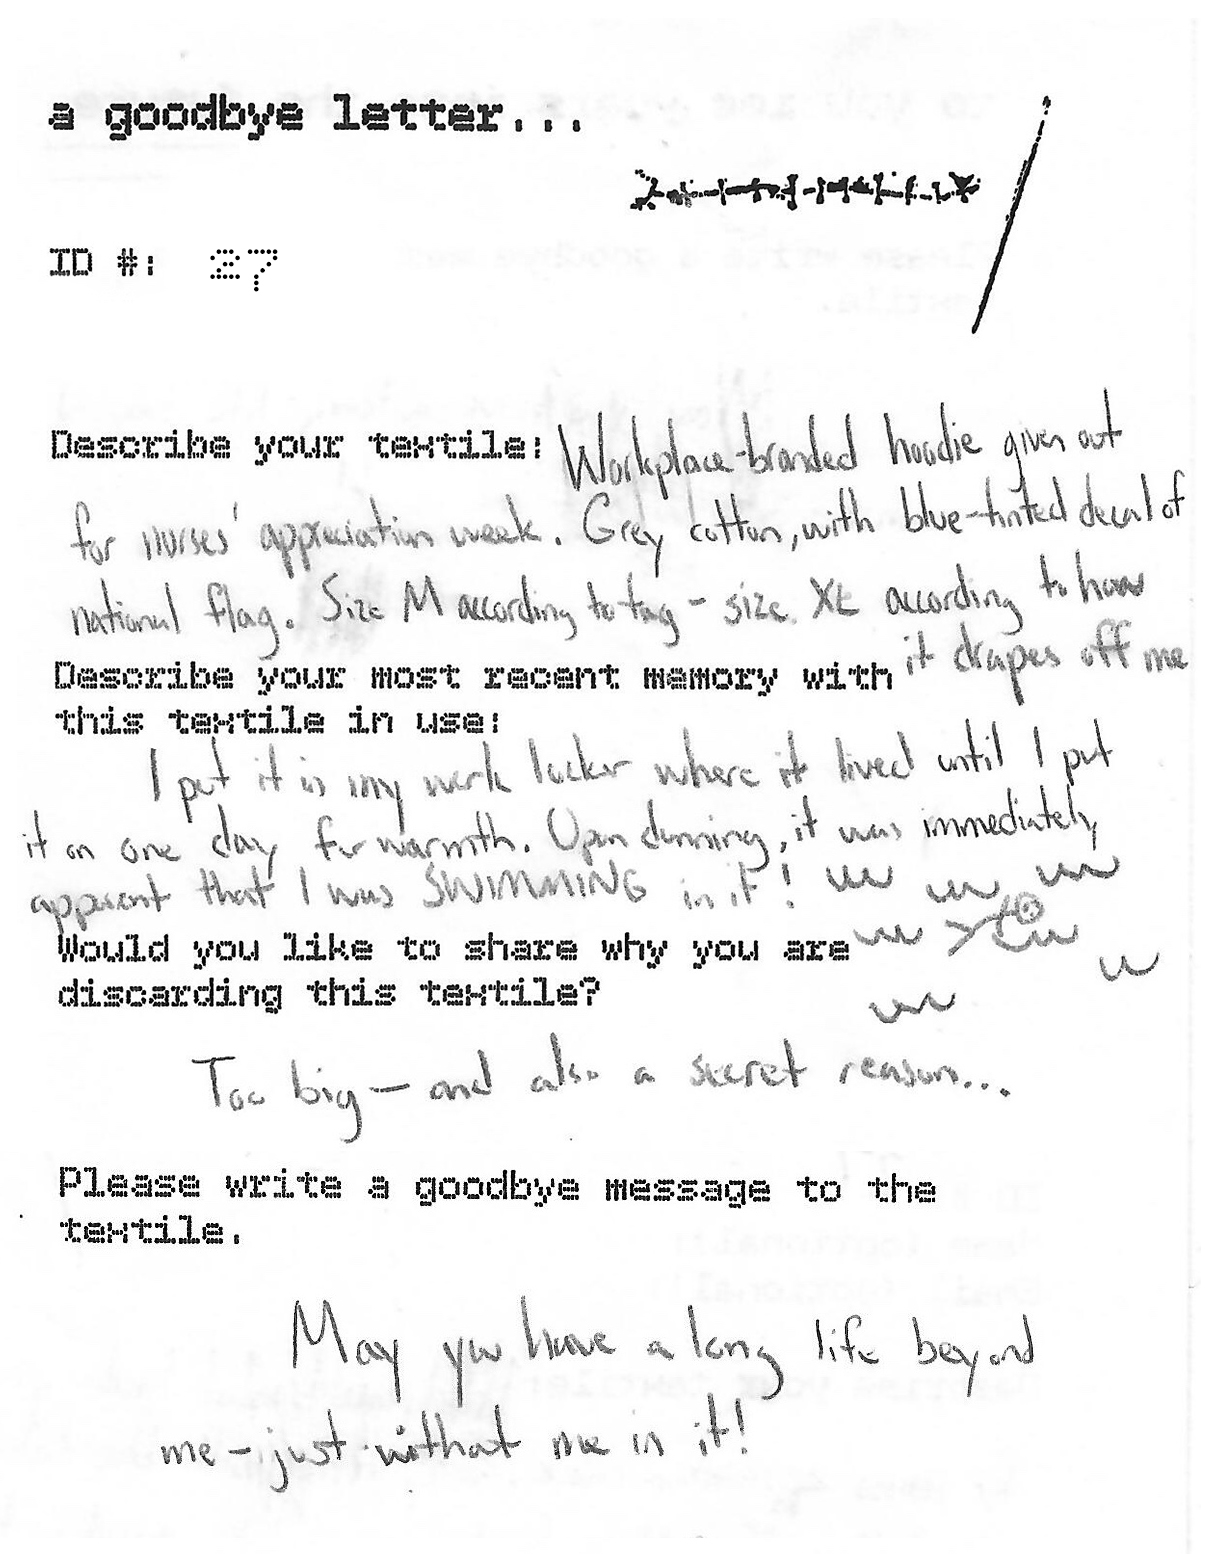 a goodbye letter...
ID #: 27
Describe your textile: Workplace-branded hoodie given out
for nurses' appreciation week. Grey cotton, with blue-tinted decal of
national flag. Size M according to tag - size XL according to how
it drapes off me
Describe your most recent memory with
this textile in use:
I put it in my work locker where it lived until I put
it on one day for warmth. Upon donning, it was immediately
apparent that I was SWIMMING in it!
Would you like to share why you are
discarding this textile?
Too big - and also a secret reason...
Please write a goodbye message to the
textile.
May you have a long life beyond
me - just without me in it!